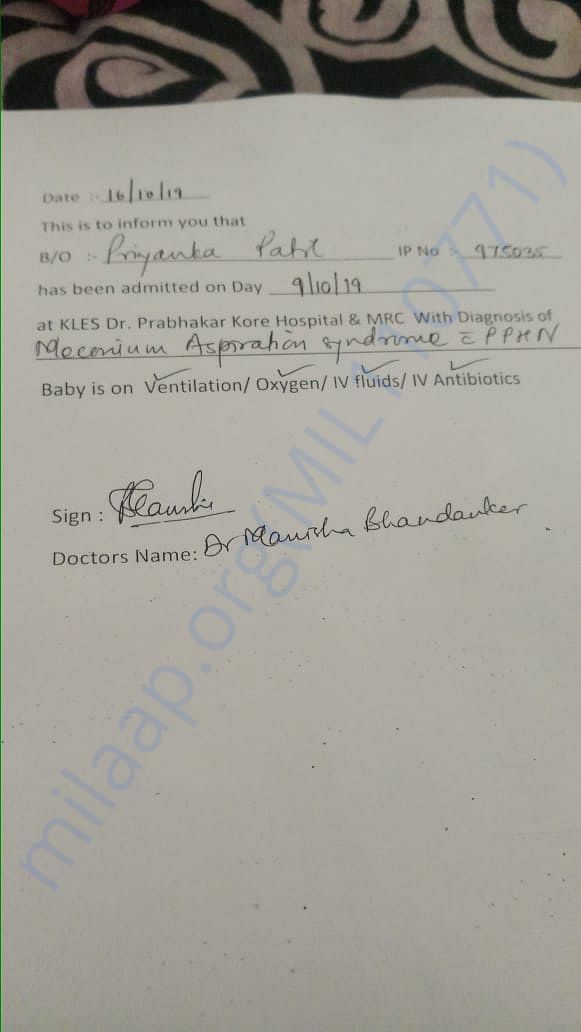 Date :- 16/10/19
This is to inform you that
B/O :- Priyanka Patil IP No :- 975035
has been admitted on Day 9/10/19
at KLES Dr. Prabhakar Kore Hospital & MRC With Diagnosis of
Meconium Aspiration syndrome c̄ PPHN
Baby is on Ventilation/ Oxygen/ IV fluids/ IV Antibiotics
Sign :
Doctors Name: Dr Manisha Bhandanker
milaap.org(MIL110771)